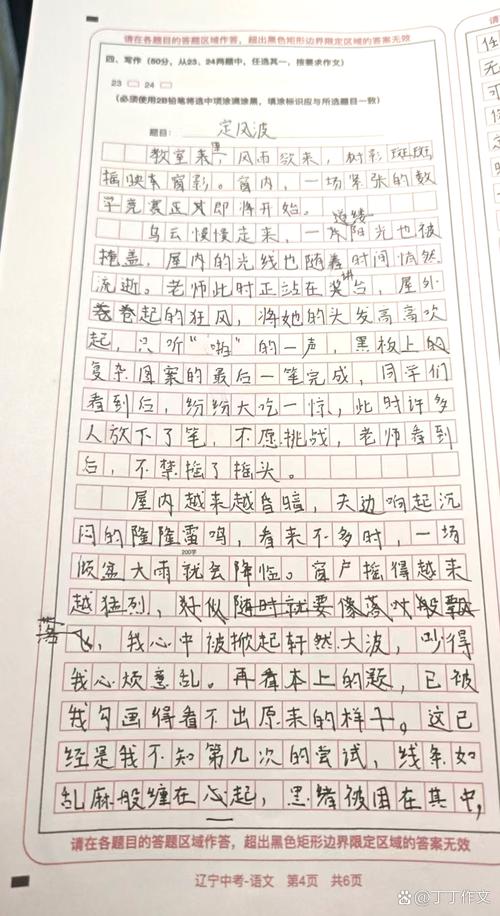 请在各题目的答题区域作答，超出黑色矩形边界限定区域的答案无效
四、写作（50分，从23、24两题中，任选其一，按要求作文）
23 24
（必须使用2B铅笔将选中项涂满涂黑，填涂标识应与所选题目一致）
题目： 定风波
教室里，风雨欲来，树影斑斑，
摇映在窗影。窗内，一场紧张的数
学竞赛正其即将开始。
边缘
乌云慢慢走来，一阳光也被
掩盖，屋内的光线也随着时间悄然
流逝。老师此时正站在讲台，屋外
卷起的狂风，将她的头发高高吹
起，只听“啪”的一声，黑板上的
复杂图案的最后一笔完成，同学们
看到后，纷纷大吃一惊，此时许多
人放下了笔，不愿挑战，老师看到
后，不禁摇了摇头。
屋内越来越昏暗，天边响起沉
闷的隆隆雷鸣，看来不多时，一场
200字
倾盆大雨就会降临。窗户摇得越来
越猛烈，好似随时就要像落叶般飘
落，我心中被掀起轩然大波，吵得
我心烦意乱。再看本上的题，已被
我勾画得看不出原来的样子，这已
经是我不知第几次的尝试，线条如
乱麻般缠在心起，思绪被困在其中，
请在各题目的答题区域作答，超出黑色矩形边界限定区域的答案无效
辽宁中考-语文 第4页 共6页
任
无
可
请
@丁丁作文